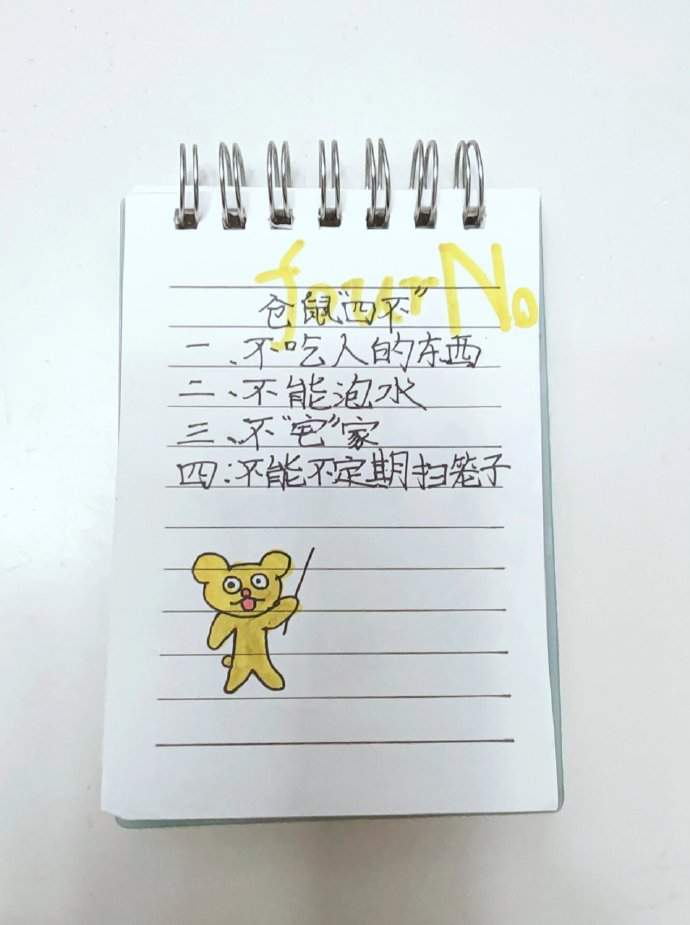 four No
仓鼠“四不”
一、不吃人的东西
二、不能泡水
三、不“宅”家
四：不能不定期扫笼子